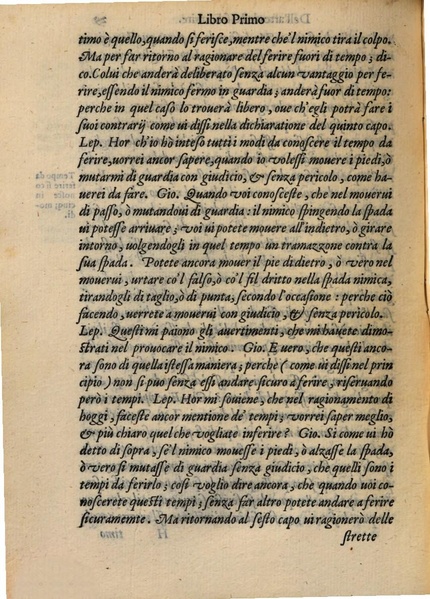 Libro Primo
timo è quello, quando si ferisce, mentre che'l nimico tira il colpo.
Ma per far ritorno al ragionare del ferire fuori di tempo; di-
co. Colui che anderà deliberato senza alcun vantaggio per fe-
rire, essendo il nimico fermo in guardia; anderà fuor di tempo:
perche in quel caso lo trouerà libero, oue ch'egli potrà fare i
suoi contrarij come ui dissi nella dichiaratione del quinto capo.
Lep. Hor ch'io hò inteso tutti i modi da conoscere il tempo da
ferire, uorrei ancor sapere, quando io volessi mouere i piedi, ò
mutarmi di guardia con giudicio, & senza pericolo, come ha-
uerei da fare. Gio. Quando voi conosceste, che nel mouerui
di passo, ò mutandoui di guardia: il nimico spingendo la spada
ui potesse arriuare; uoi ui potete mouere all'indietro, ò girare
intorno, uolgendogli in quel tempo un tramazzone contra la
sua spada. Potete ancora mouer il pie di dietro, ò vero nel
mouerui, urtare co'l falso, ò co'l fil dritto nella spada nimica,
tirandogli di taglio, ò di punta, secondo l'occasione: perche ciò
facendo, uerrete a mouerui con giudicio, & senza pericolo.
Lep. Questi mi paiono gli auertimenti, che mi hauete dimo-
strati nel prouocare il nimico. Gio. E uero, che questi anco-
ra sono di quella istessa maniera; perche (come ui dissi nel prin
cipio) non si può senza essi andare sicuro à ferire, riseruando
però i tempi. Lep. Hor mi souiene, che nel ragionamento di
hoggi, faceste ancor mentione de' tempi; vorrei saper meglio,
& più chiaro quel che vogliate inferire? Gio. Si come ui hò
detto di sopra, se'l nimico mouesse i piedi, ò alzasse la spada,
ò vero si mutasse di guardia senza giudicio, che quelli sono i
tempi da ferirlo; così voglio dire ancora, che quando uoi co-
noscerete questi tempi; senza far altro potete andare a ferire
sicuramemte. Ma ritornando al sesto capo ui ragionerò delle
strette